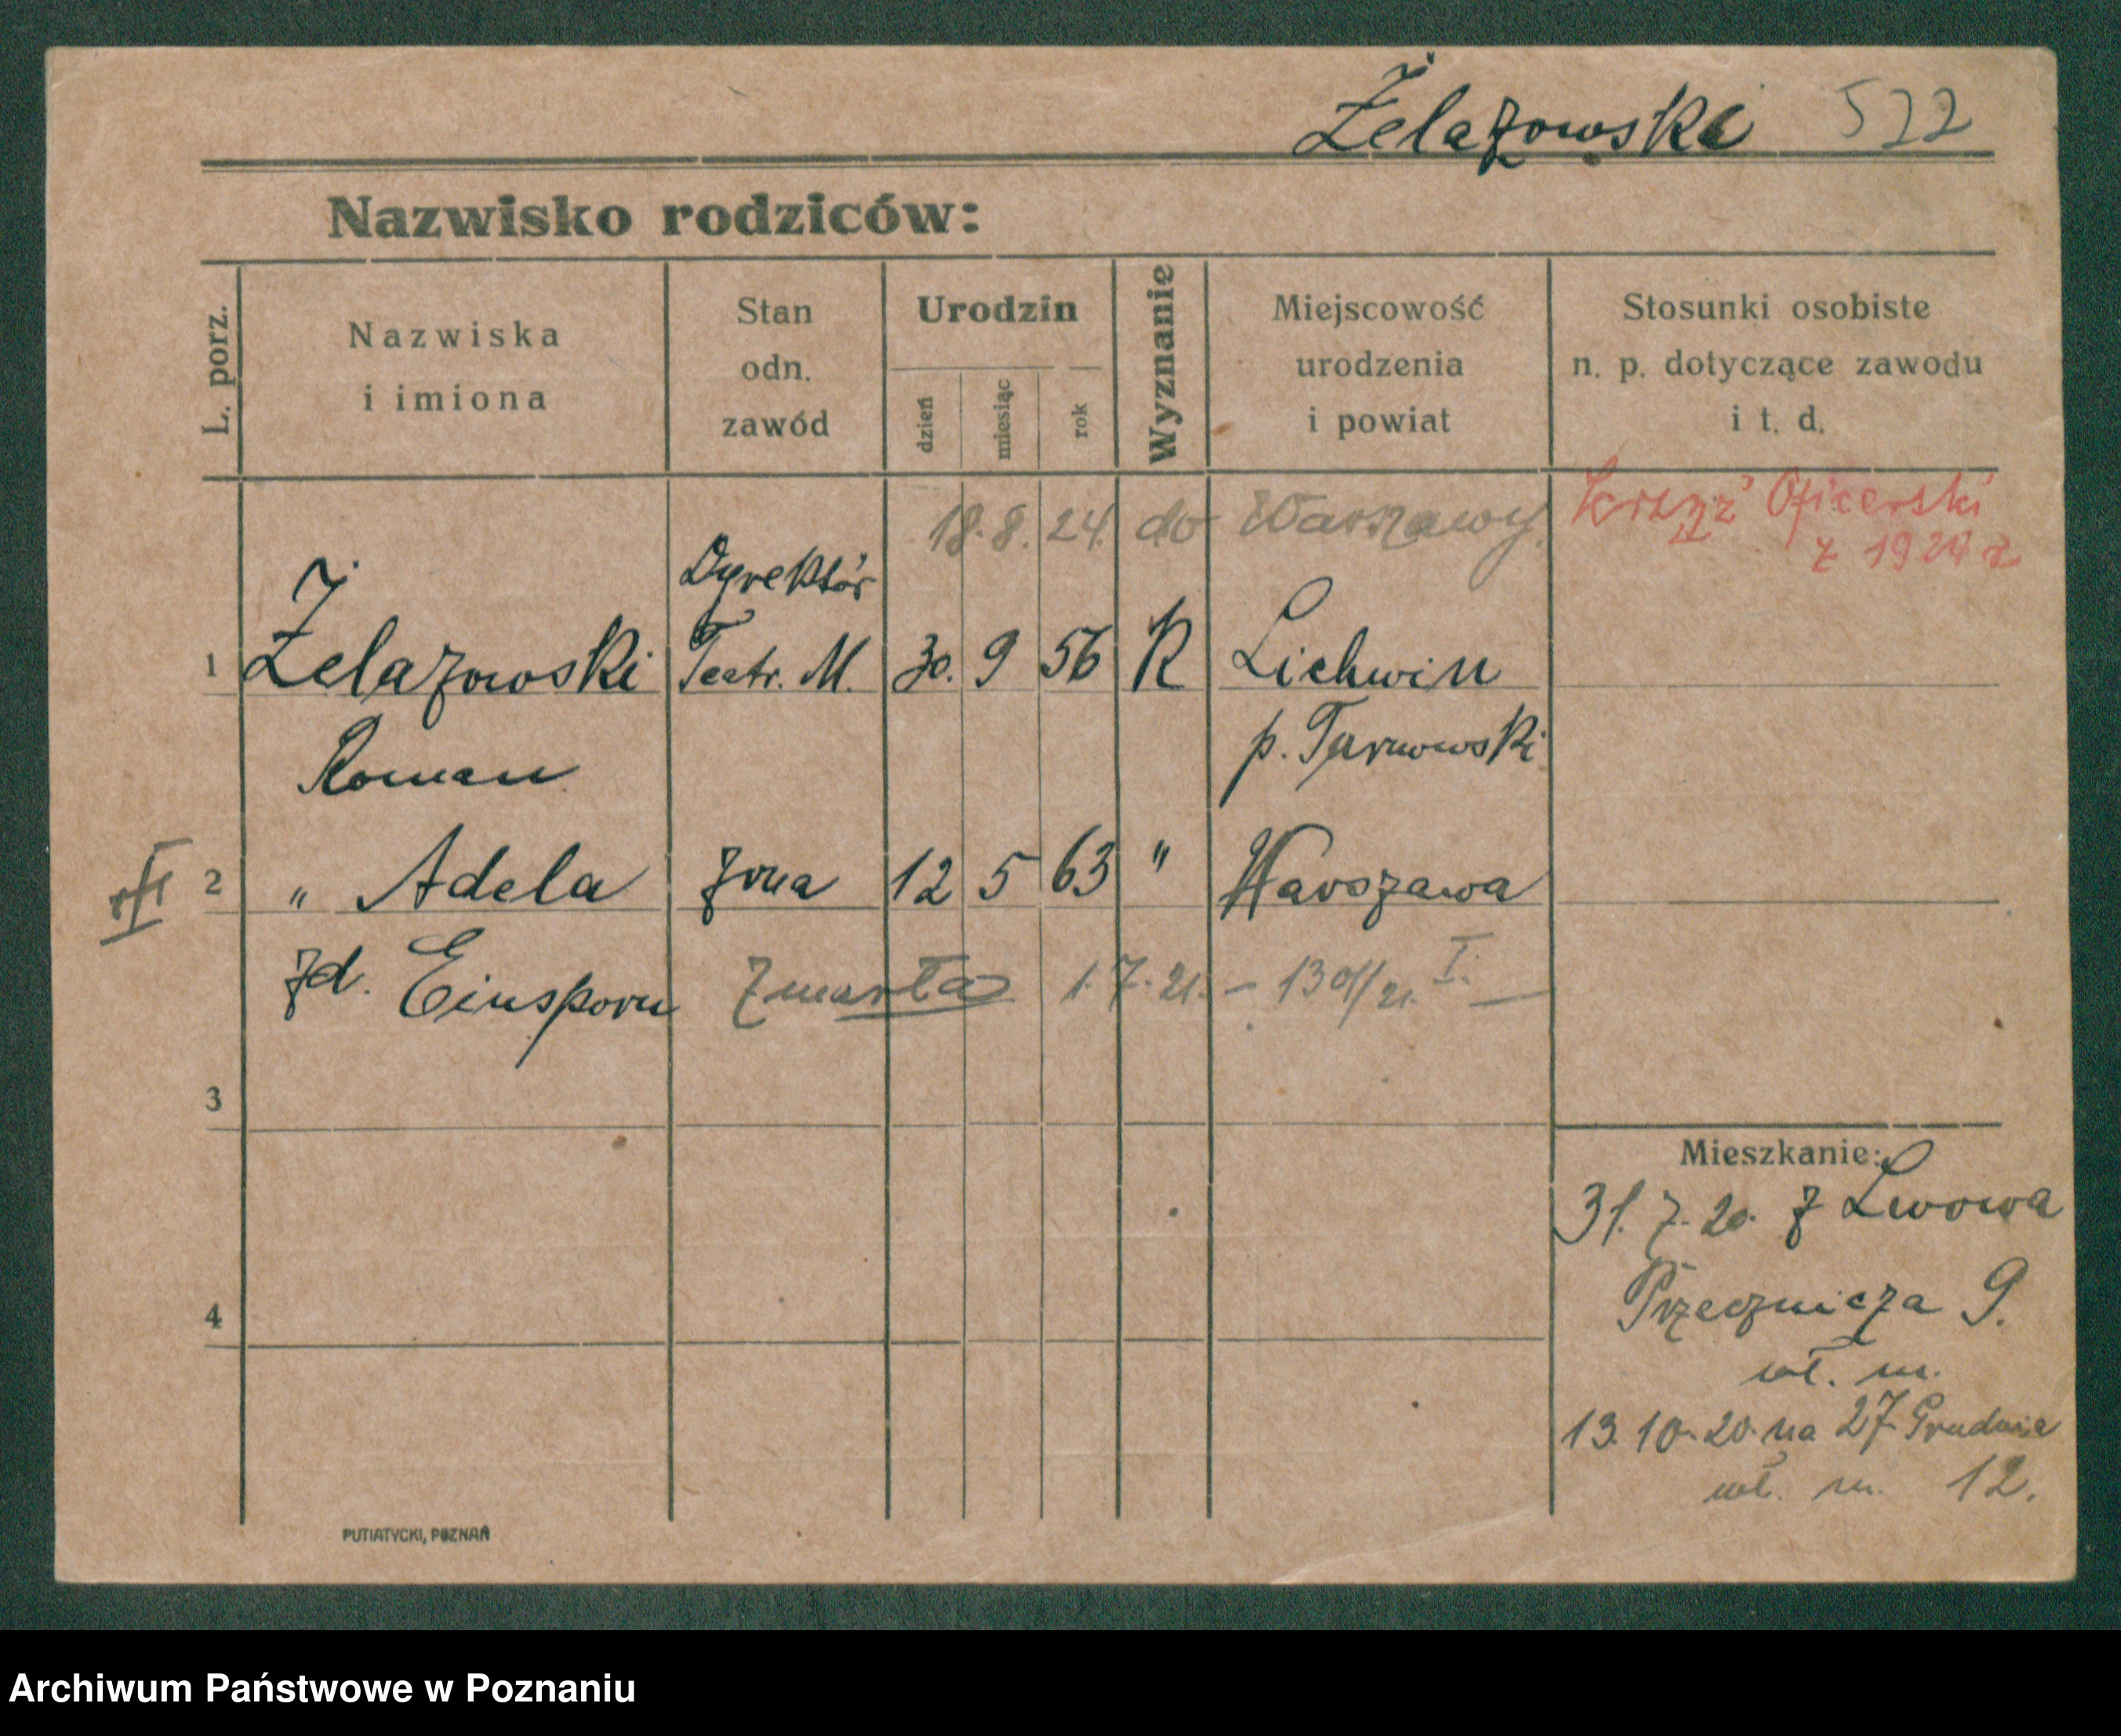 Żelazowski 522
Nazwisko rodziców:
L. porz.
Nazwiska
i imiona
Stan
odn.
zawód
Urodzin
dzień
miesiąc
rok
Wyznanie
Miejscowość
urodzenia
i powiat
Stosunki osobiste
n. p. dotyczące zawodu
i t. d.
18. 8. 24. do Warszawy.
Krzyż Oficerski
z 1924 r
Dyrektór
1 Żelazowski Teatr. M. 30. 9 56 R Lichwin
Roman p. Tarnowski
2 " Adela żona 12 5 63 " Warszawa
zd. Einsporn zmarła 1. 7. 21. –
3
Mieszkanie:
31. 7. 20. z Lwowa
4 Przecznicza 9.
wł. m.
13. 10. 20. na 27 Grudnia
wł. m. 12.
PUTIATYCKI, POZNAŃ
Archiwum Państwowe w Poznaniu